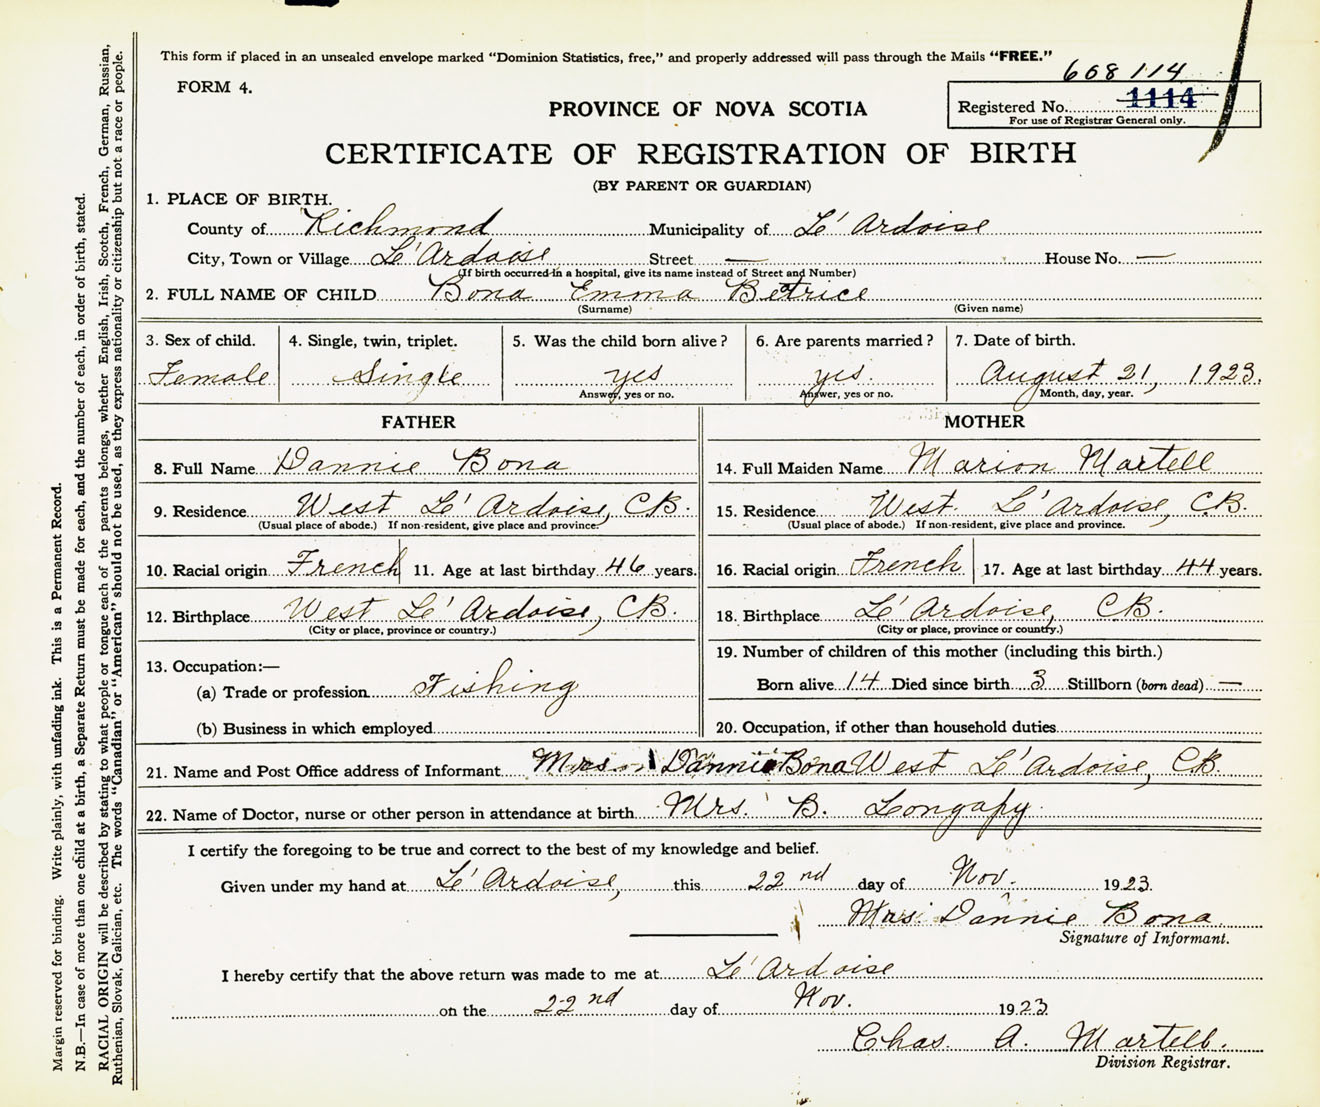 This form if placed in an unsealed envelope marked “Dominion Statistics, free,” and properly addressed will pass through the Mails “FREE.”
608114
FORM 4.
Registered No. 1114
For use of Registrar General only.
PROVINCE OF NOVA SCOTIA
CERTIFICATE OF REGISTRATION OF BIRTH
(BY PARENT OR GUARDIAN)
1. PLACE OF BIRTH.
County of Richmond Municipality of Le' Ardoise
City, Town or Village Le' Ardoise Street — House No. —
(If birth occurred in a hospital, give its name instead of Street and Number)
2. FULL NAME OF CHILD Bona Emma Betrice
(Surname) (Given name)
3. Sex of child. 4. Single, twin, triplet. 5. Was the child born alive? 6. Are parents married? 7. Date of birth.
Female Single yes yes. August 21, 1923.
Answer, yes or no. Answer, yes or no. Month, day, year.
FATHER MOTHER
8. Full Name Dannie Bona 14. Full Maiden Name Marion Martell
9. Residence West Le' Ardoise, C.B. 15. Residence West. Le' Ardoise, C.B.
(Usual place of abode.) If non-resident, give place and province. (Usual place of abode.) If non-resident, give place and province.
10. Racial origin French 11. Age at last birthday 46 years. 16. Racial origin French 17. Age at last birthday 44 years.
12. Birthplace West Le' Ardoise, C.B. 18. Birthplace Le' Ardoise, C.B.
(City or place, province or country.) (City or place, province or country.)
13. Occupation:— 19. Number of children of this mother (including this birth.)
(a) Trade or profession Fishing Born alive 14 Died since birth 3 Stillborn (born dead) —
(b) Business in which employed 20. Occupation, if other than household duties
21. Name and Post Office address of Informant Mrs. Dannie Bona West Le' Ardoise, C.B.
22. Name of Doctor, nurse or other person in attendance at birth Mrs. B. Longapy
I certify the foregoing to be true and correct to the best of my knowledge and belief.
Given under my hand at Le' Ardoise, this 22nd day of Nov. 1923.
Mrs. Dannie Bona
Signature of Informant.
I hereby certify that the above return was made to me at Le' Ardoise
on the 22nd day of Nov. 1923
Chas. A. Martell.
Division Registrar.
Margin reserved for binding. Write plainly, with unfading ink. This is a Permanent Record.
N.B.—In case of more than one child at a birth, a Separate Return must be made for each, and the number of each, in order of birth, stated.
RACIAL ORIGIN will be described by stating to what people or tongue each of the parents belongs, whether English, Irish, Scotch, French, German, Russian,
Ruthenian, Slovak, Galician, etc. The words “Canadian” or “American” should not be used, as they express nationality or citizenship but not a race or people.